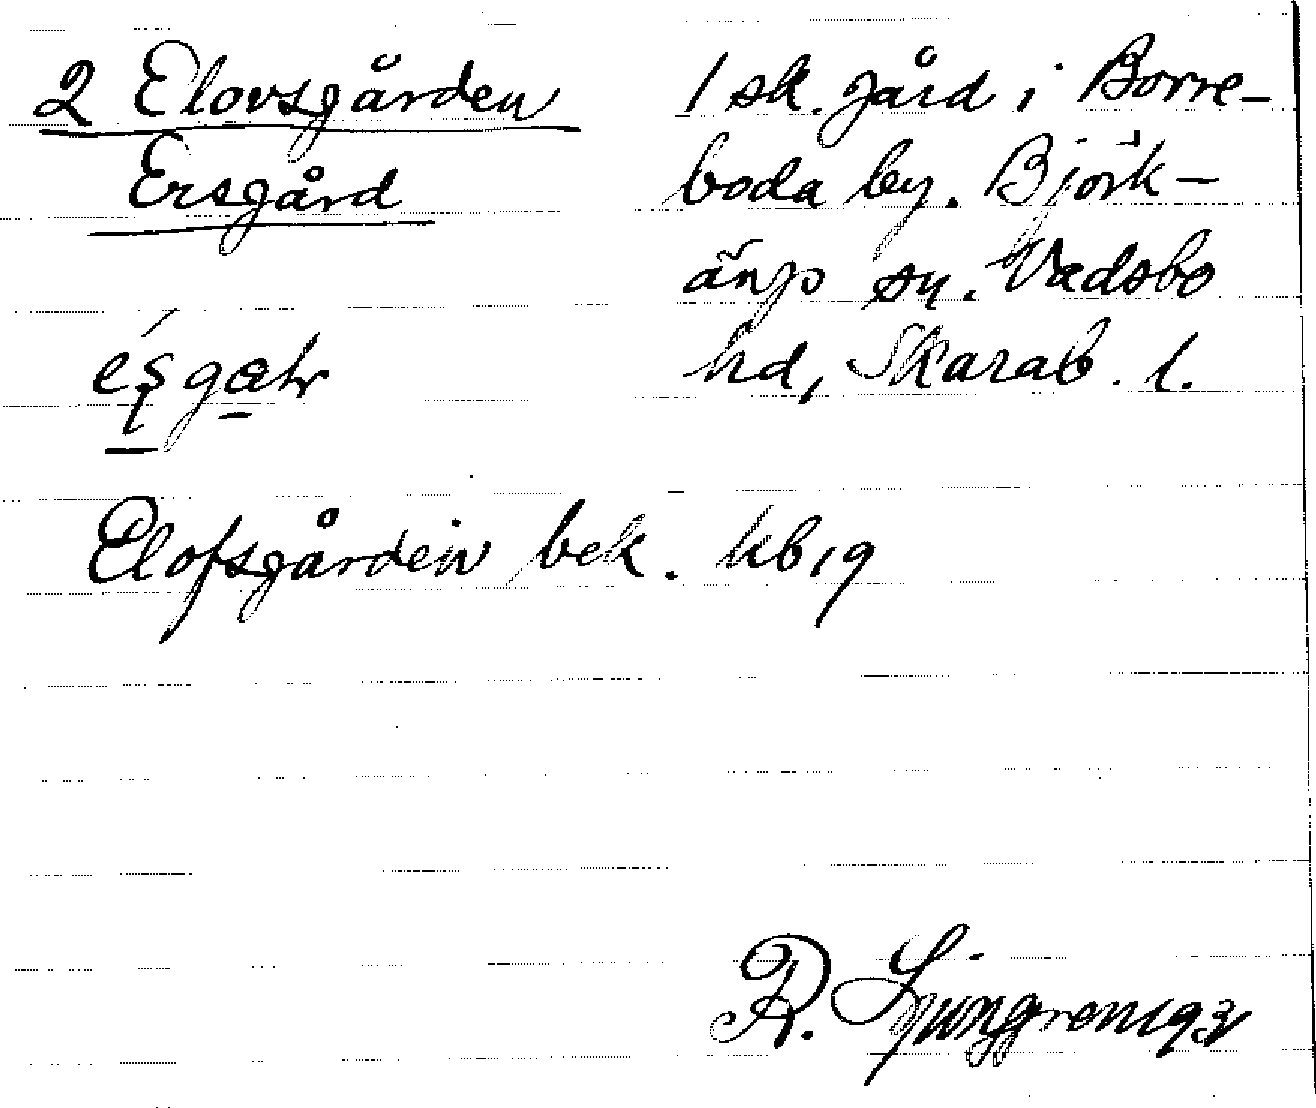 2 Elovsgården
Ersgård
1 sk. gård i Borre-
boda by. Björk-
ängs sn. Vadsbo
hd, Skarab. l.
Elofsgården bek. kb 19
R. Ljunggren 193